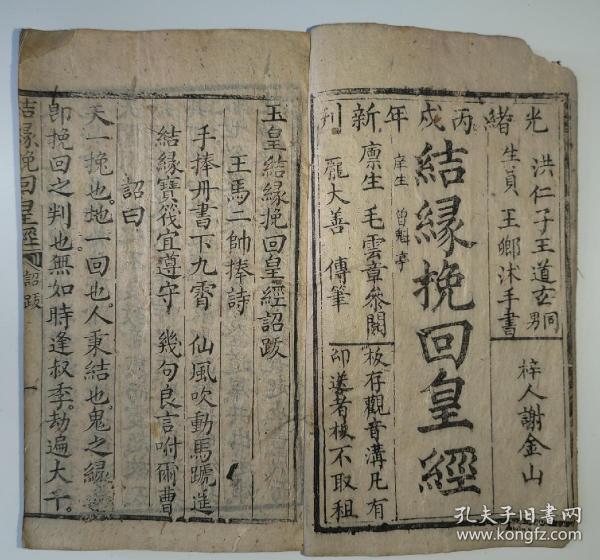 光緒丙戌年新刊
洪仁子王道玄同男
生員王鄉沐手書
梓人謝金山
結緣挽回皇經
庠生曾魁亭
廩生毛雲章參閱
龎大善傳筆
板存觀音溝凡有
印送者板不取租
玉皇結緣挽回皇經詔跋
王馬二帥捧詩
手捧丹書下九霄 仙風吹動馬蹏遥
結緣寶筏宜遵守 幾句良言咐爾曹
詔曰
天一挽也。地一回也。人秉結也。鬼之緣
即挽回之判也。無如時逢叔季。劫遍大千。
結緣挽回皇經 詔跋 一
孔夫子旧书网
www.kongfz.com